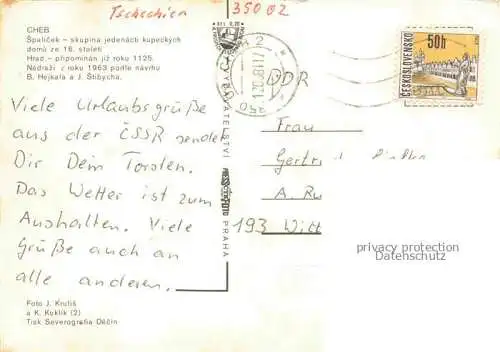 Tschechien
35002
CHEB
Špalíček – skupina jedenácti kupeckých
domů ze 16. století
Hrad – připomínán již roku 1125.
Nádraží z roku 1963 podle návrhu
B. Hejkala a J. Štibycha.
Viele Urlaubsgrüße
aus der ČSSR sendet
Dir Dein Torsten.
Das Wetter ist zum
Aushalten. Viele
Grüße auch an
alle anderen.
Foto J. Krušiš
a K. Kuklík (2)
Tisk Severografia Děčín
PRAHA
CHEB 2
DDR
ČESKOSLOVENSKO
50h
Frau
Gertr
A. Ru
193 Witt
privacy protection
Datenschutz